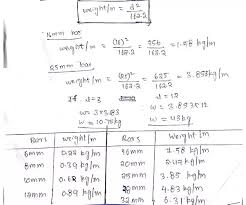 weight/m = d²/162.2
16mm bar
weight/m = (16)²/162.2 = 256/162.2 = 1.58 kg/m
25mm bar
weight/m = (25)²/162.2 = 625/162.2 = 3.853 kg/m
If d=3 d=12
w = 3×3.83 w = 3.853×12
w =
Bars weight/m Bars Weight/m
6mm 0.22 kg/m 16mm 1.58 kg/m
8mm 0.39 kg/m 20mm kg/m
10mm kg/m 25mm 3.85 kg/m
12mm 0.89 kg/m kg/m
32mm 6.31 kg/m